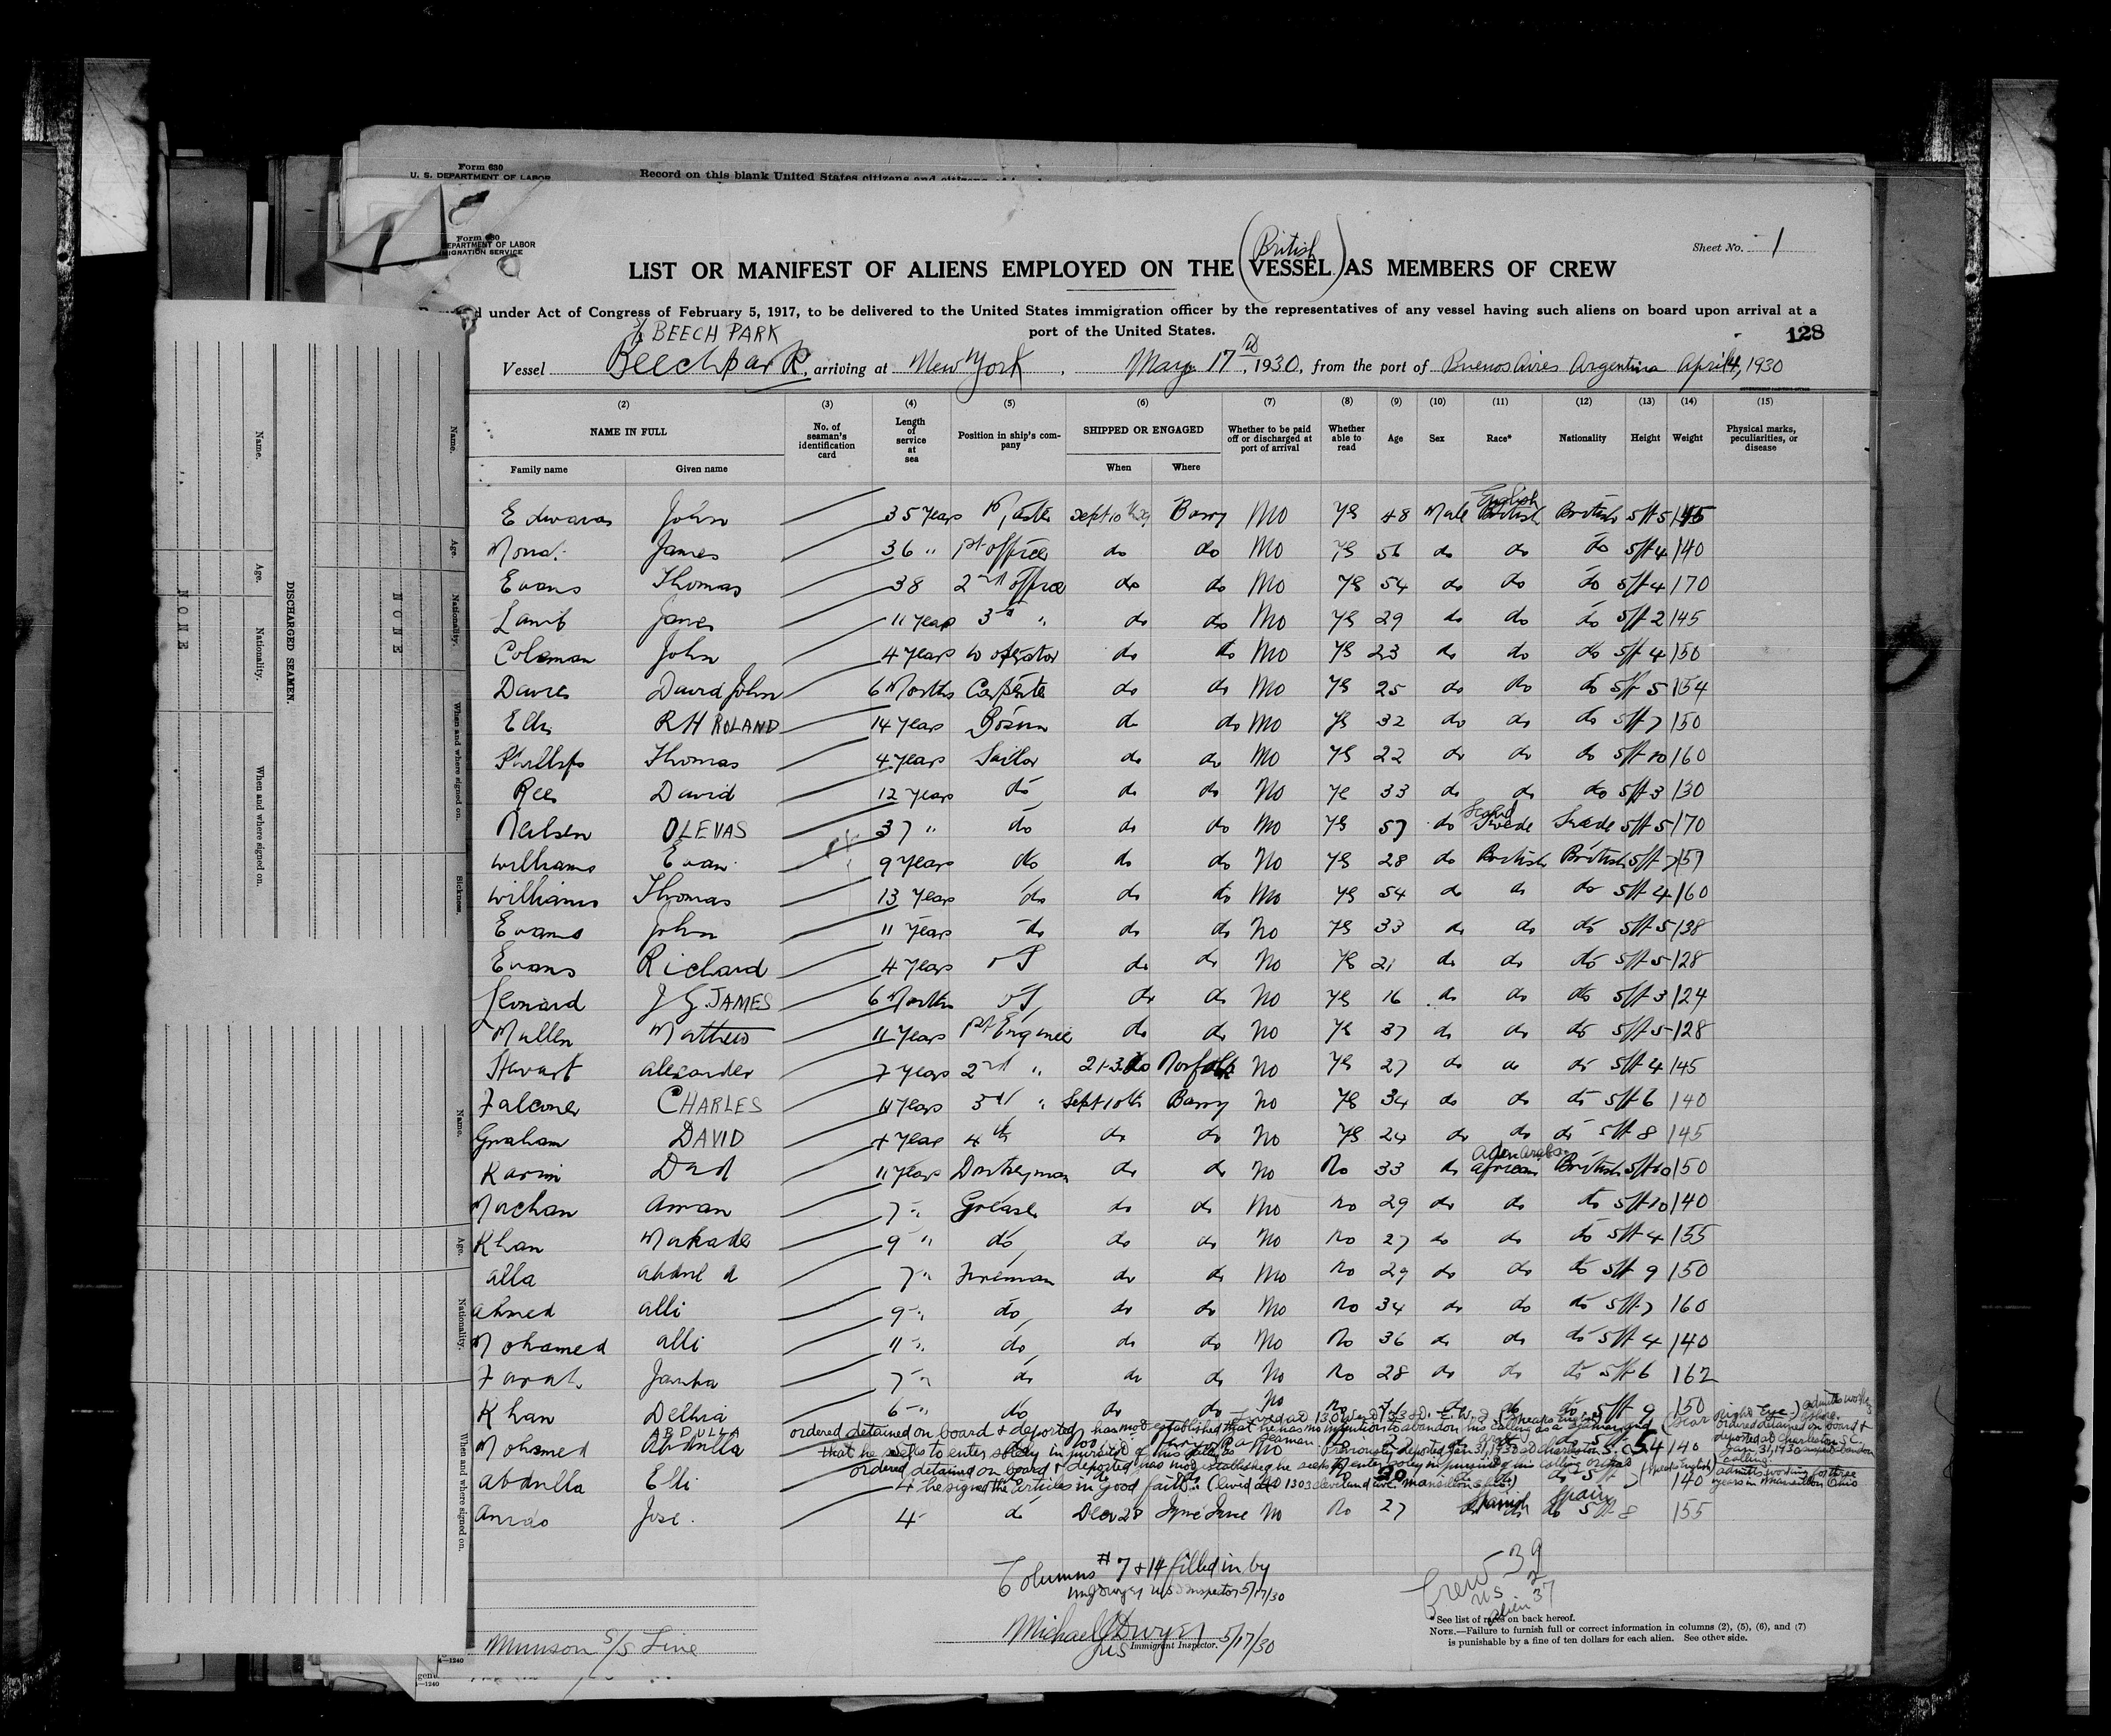 Form 630
U. S. DEPARTMENT OF LABOR
Record on this blank United States citizens and
Form
DEPARTMENT OF LABOR
IMMIGRATION SERVICE
Sheet No. 1
(British
LIST OR MANIFEST OF ALIENS EMPLOYED ON THE VESSEL) AS MEMBERS OF CREW
under Act of Congress of February 5, 1917, to be delivered to the United States immigration officer by the representatives of any vessel having such aliens on board upon arrival at a
port of the United States.
128
BEECH PARK
Vessel Beechpark, arriving at New York, May 17, 1930, from the port of Buenos Aires Argentina April, 1930
(2) (3) (4) (5) (6) (7) (8) (9) (10) (11) (12) (13) (14) (15)
NAME IN FULL No. of seaman's identification card Length of service at sea Position in ship's company SHIPPED OR ENGAGED Whether to be paid off or discharged at port of arrival Whether able to read Age Sex Race* Nationality Height Weight Physical marks, peculiarities, or disease
Family name Given name When Where
English
Edwards John 35 years Master Sept 10 Barry No Yes 48 Male British British 5ft 5 145
James 36 " 1st officer do do No Yes 56 do do do 5ft 4 140
Evans Thomas 38 2nd office do do No Yes 54 do do do 5ft 4 170
Lamb James 11 years 3rd " do do No Yes 29 do do do 5ft 2 145
Coleman John 4 years W operator do do No Yes 23 do do do 5ft 4 150
Davies David John 6 Months Carpenter do do No Yes 25 do do do 5ft 5 154
Ellis RH ROLAND 14 years Bosun do do No Yes 32 do do do 5ft 7 150
Phillips Thomas 4 years Sailor do do No Yes 22 do do do 5ft 10 160
Rees David 12 years do do do No Ye 33 do do do 5ft 3 130
Scand
Neilsen OLEVAS 37 " do do do No Yes 57 do Swede Swede 5ft 5 170
Williams Evan 9 years do do do No Yes 28 do British British 5ft 7 157
Williams Thomas 13 years do do do No Yes 54 do do do 5ft 4 160
Evans John 11 years do do do No Yes 33 do do do 5ft 5 138
Evans Richard 4 years do do No Yes 21 do do do 5ft 5 128
Leonard J G JAMES 6 Months do do No Yes 16 do do do 5ft 3 124
Mullen Mathew 11 years 1st Engineer do do No Yes 37 do do do 5ft 5 128
Stewart Alexander 7 years 2nd " Norfolk No Yes 27 do do do 5ft 4 145
Falconer CHARLES 11 years 3rd " Sept 10th Barry No Yes 34 do do do 5ft 6 140
Graham DAVID 4 year 4th do do No Yes 24 do do do 5ft 8 145
Aden Arabs
Karim Dad 11 years Donkeyman do do No No 33 do African British 5ft 10 150
Aman 7 " Greaser do do No No 29 do do do 5ft 10 140
Khan 9 " do do do No No 27 do do do 5ft 4 155
Alla 7 " Fireman do do No No 29 do do do 5ft 9 150
Ahmed Alli 9 " do do do No No 34 do do do 5ft 7 160
Mohamed Alli 11 " do do do No No 36 do do do 5ft 4 140
Farah 7 " do do do No No 28 do do do 5ft 6 162
Khan 6 " do do do No No do do do 5ft 9 150
ordered detained on board & deported, has not established that he has no intention to abandon his calling as a seaman and
ABDULLA
Mohamed Abdulla
that he seeks to enter solely in pursuit of his calling as a seaman Previously deported Jan 31, 1930 at Charleston S.C. 54 140
Right Eye) admits working
ordered detained on board &
deported at Charleston S.C.
Jan 31, 1930
calling.
ordered detained on board & deported has not established he seeks to enter solely in pursuit of his calling or that
(Speaks English)
Abdulla Elli
4 he signed the articles in good faith. (lived at 1303 Cleveland ave. Massillon Ohio.) 140
admits working for three
years in Massillon Ohio
Spanish Spain
Jose 4 do Dec 28 No No 27 do 5ft 8 155
Columns #7 & 14 filled in by
US Inspector 5/17/30
Michael J Dwyer 5/17/30
US Immigrant Inspector.
Crew 39
US 2
alien 37
*See list of races on back hereof.
NOTE.—Failure to furnish full or correct information in columns (2), (5), (6), and (7)
is punishable by a fine of ten dollars for each alien. See other side.
Munson S/S Line
4—1240
Name.
Age.
Nationality.
When and where signed on.
NONE
DISCHARGED SEAMEN.
NONE
Name.
Age.
Nationality.
When and where signed on.
Sickness.
Name.
Age.
Nationality.
When and where signed on.